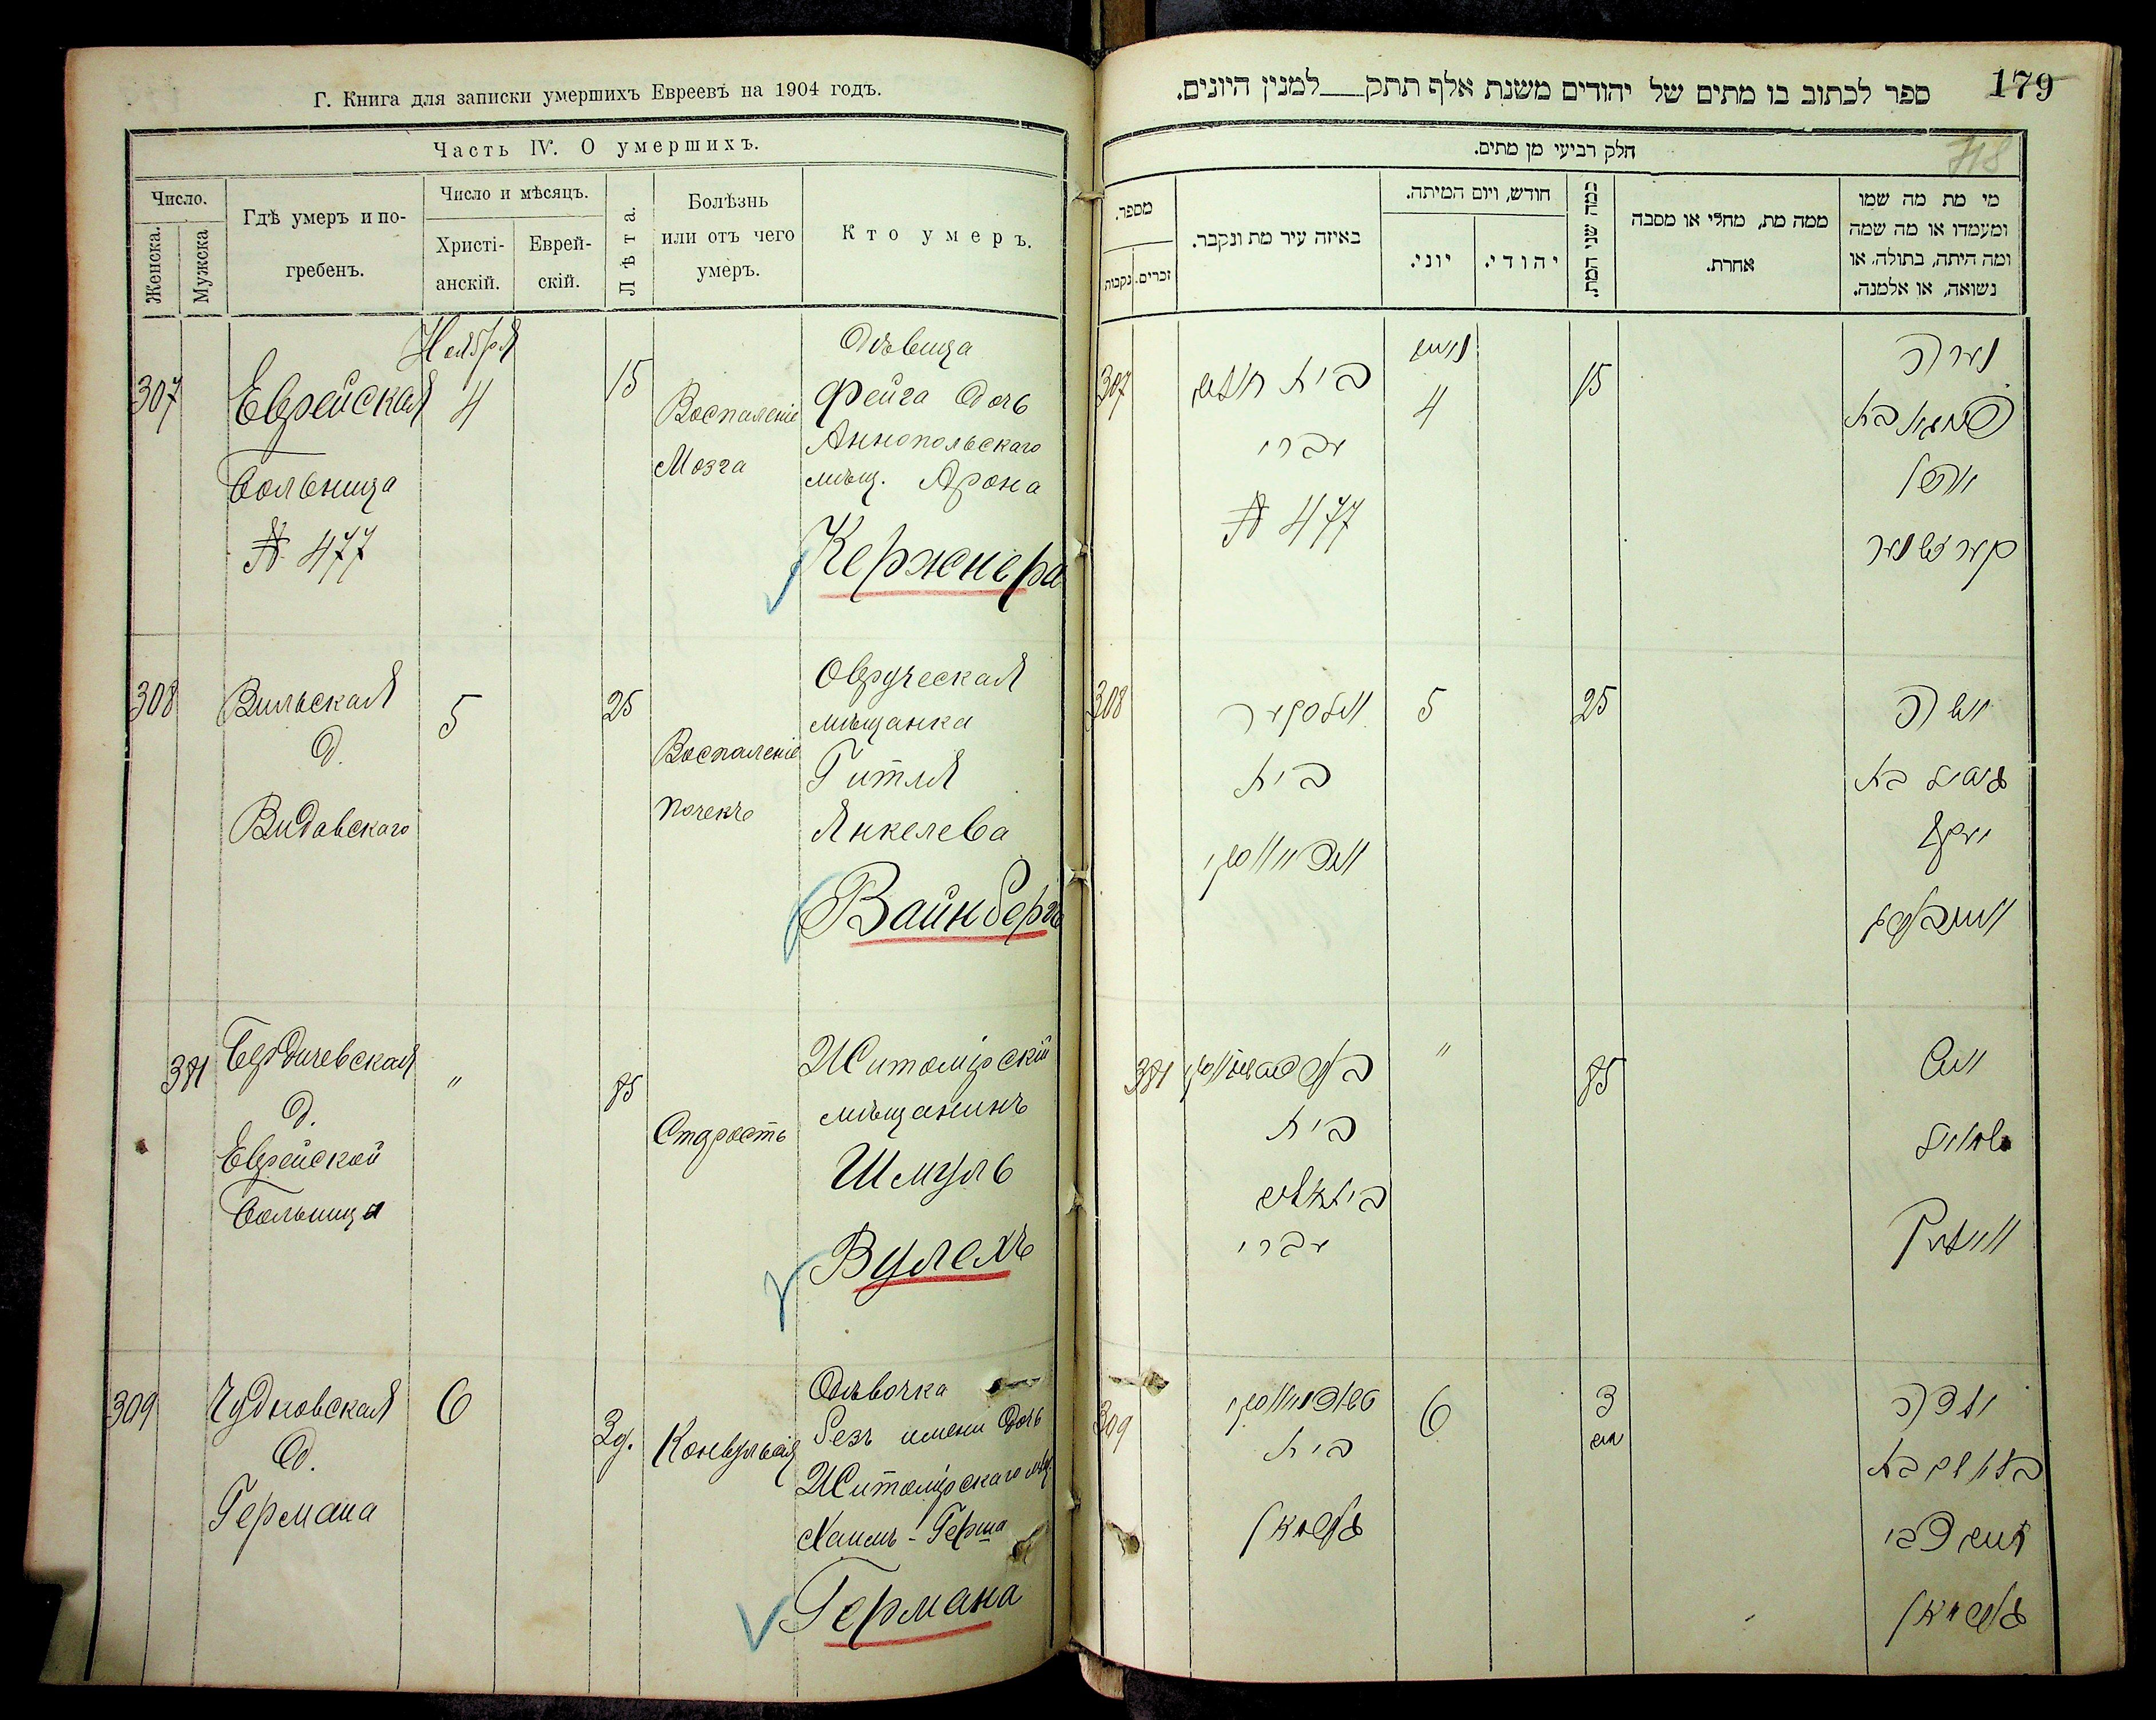 Г. Книга для записки умершихъ Евреевъ на 1904 годъ.
Часть IV. О умершихъ.
Число.
Женска.
Мужска.
Гдѣ умеръ и по-
гребенъ.
Число и мѣсяцъ.
Христі-
анскій.
Еврей-
скій.
Лѣта.
Болѣзнь
или отъ чего
умеръ.
Кто умеръ.
307
Еврейская
больница
№ 477
Ноября
4
15
Воспаленіе
Мозга
Дѣвица
Фейга дочь
Аннопольскаго
мѣщ. Арона
Кержнера
308
Вильская
д.
Видавскаго
5
25
Воспаленіе
почекъ
Овручская
мѣщанка
Гитля
Янкелева
Вайнбергъ
381
Бердичевская
д.
Еврейской
больницы
"
85
Старость
Житомірскій
мѣщанинъ
Шмуль
Вулехъ
309
Чудновская
д.
Германа
6
3 д.
Конвульсія
Дѣвочка
безъ имени дочь
Житомірскаго мѣщ.
Хаимъ-Герша
Германа
179
718
ספר לכתוב בו מתים של יהודים משנת אלף תתק למנין היונים.
חלק רביעי מן מתים.
מספר.
זכרים.
נקבות
באיזה עיר מת ונקבר.
חודש, ויום המיתה.
יוני.
יהודי.
כמה שני המת.
ממה מת, מחלי או מסבה
אחרת.
מי מת מה שמו
ומעמדו או מה שמה
ומה היתה, בתולה, או
נשואה, או אלמנה.
307
בית חולים
עברי
№ 477
4
15
נערה
בת
אהרן
קערזשנער
308
בית
5
25
אשה
גיטל בת
יעקב
וויינבערג
381
בית
עברי
"
85
שמואל
309
בית
גערמאן
6
3
ילדה
בלי שם בת
חיים צבי
גערמאן